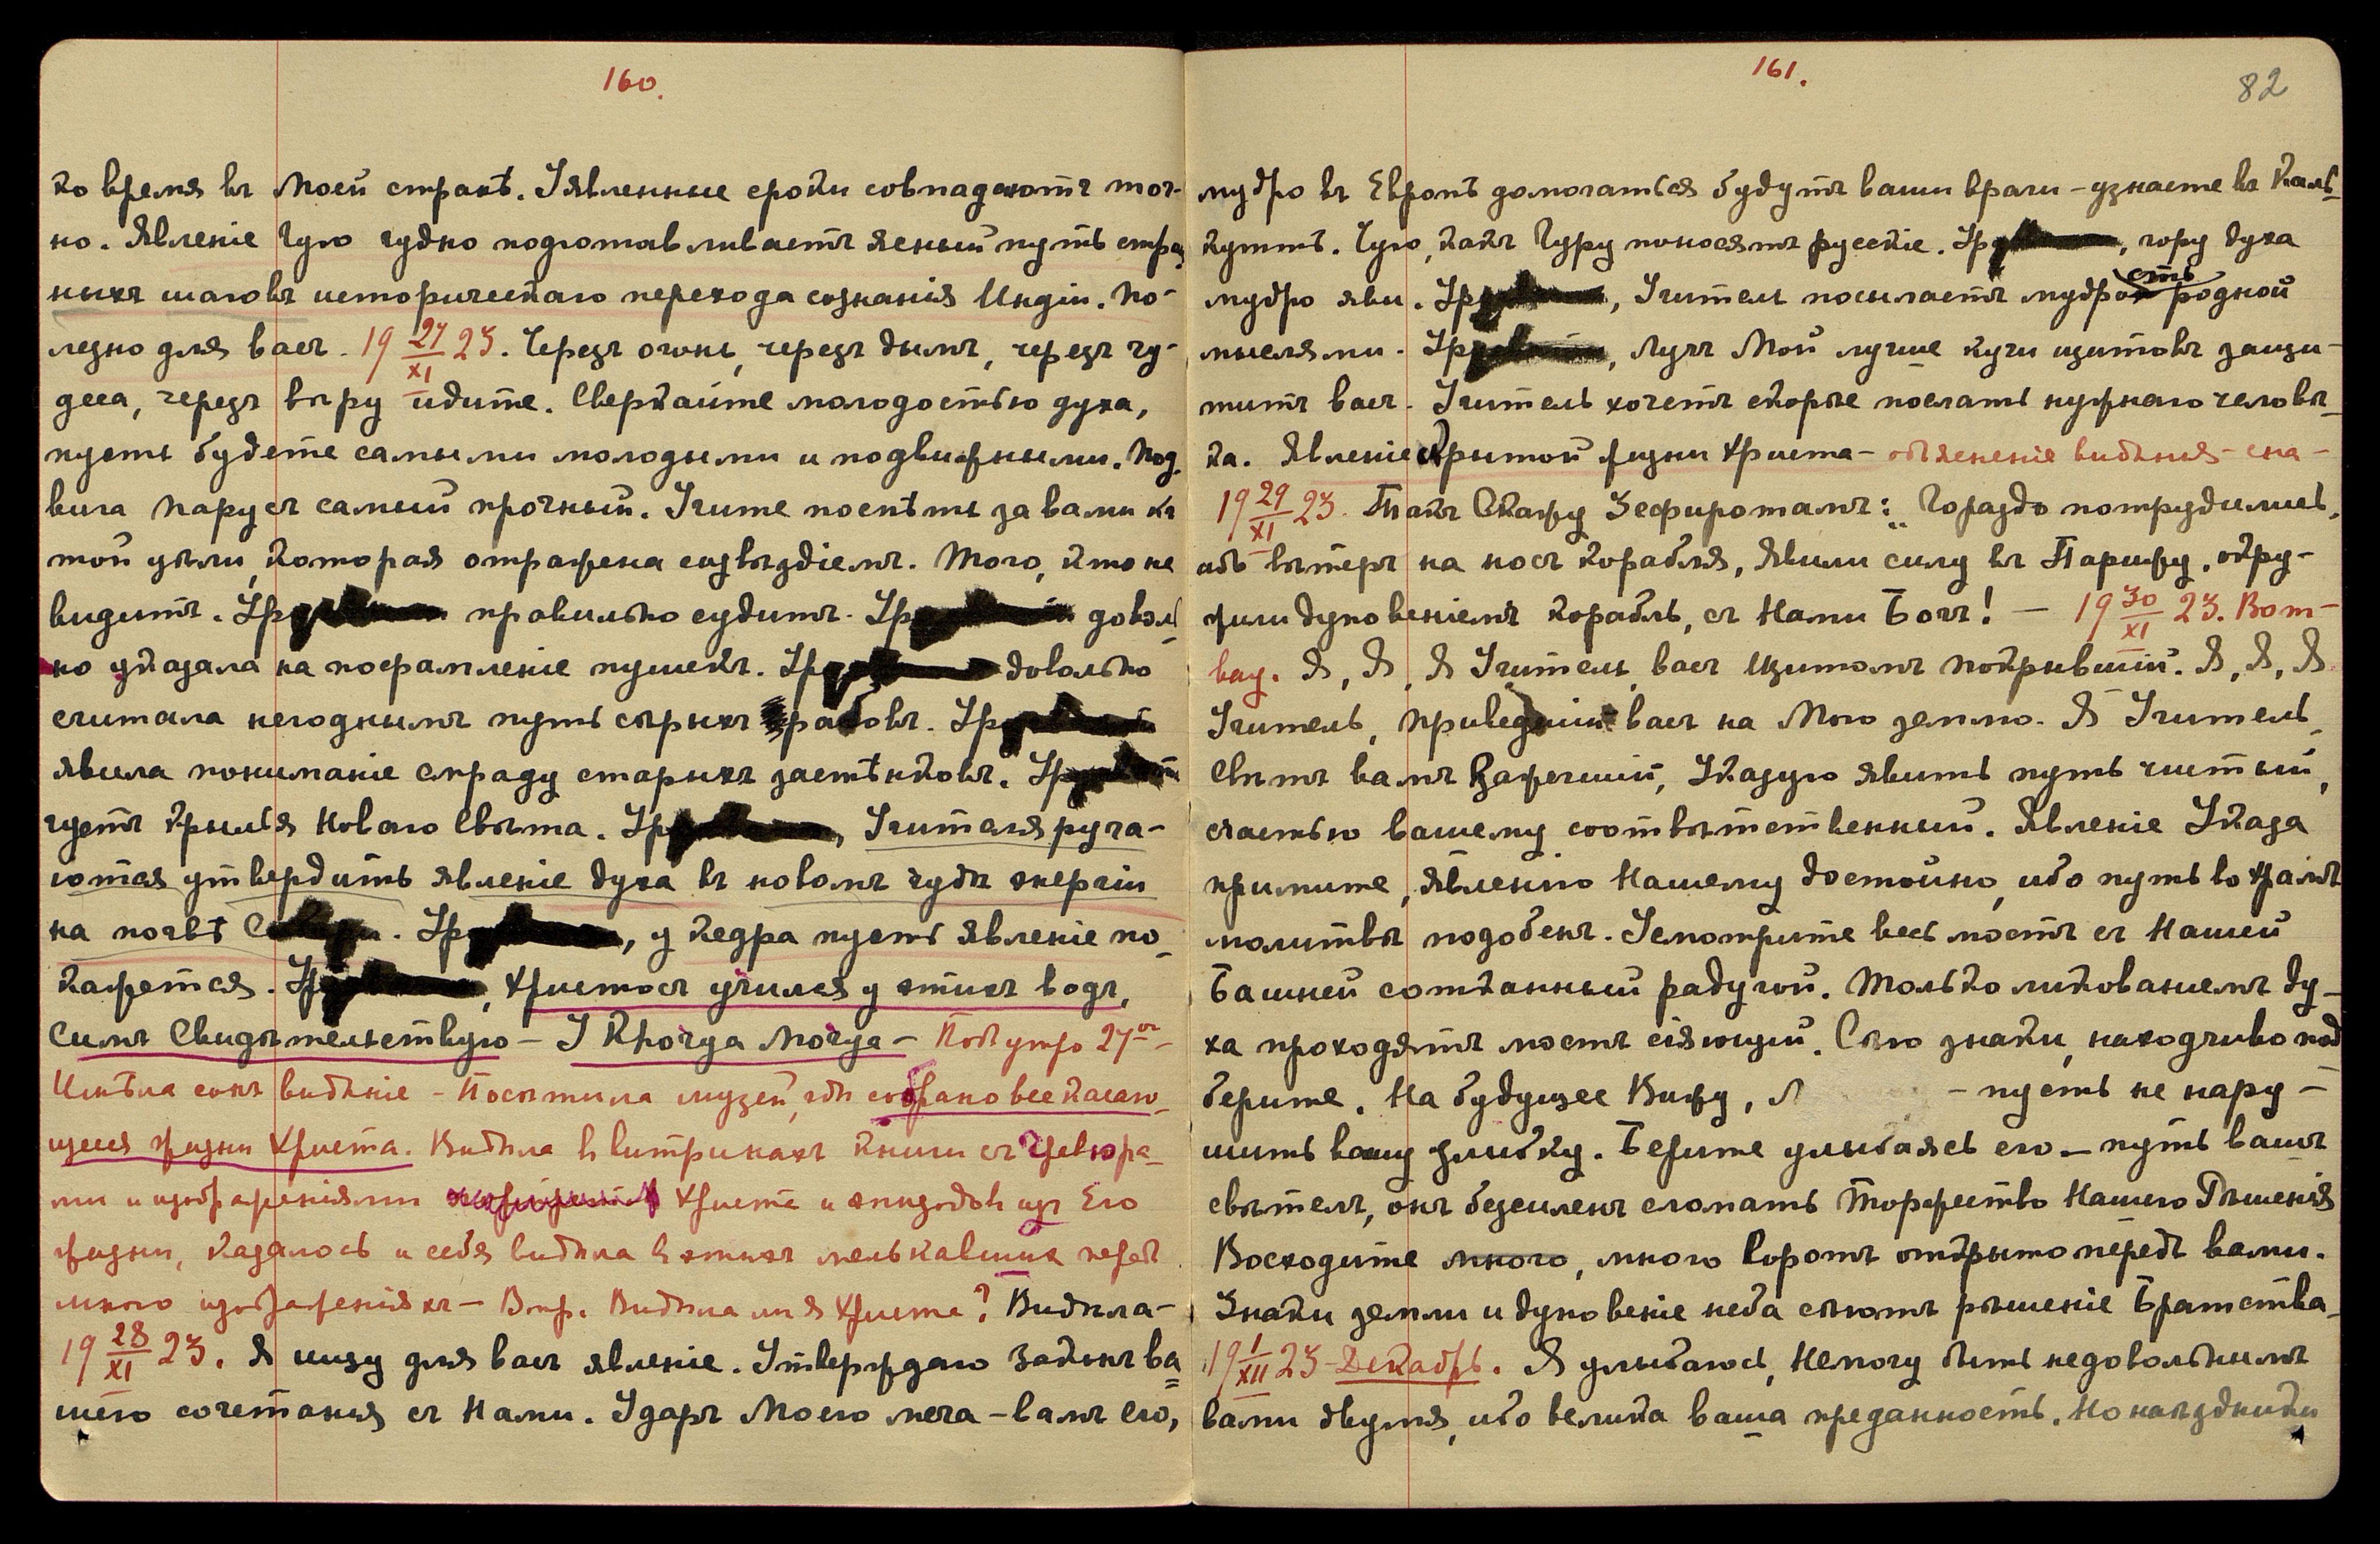 160.
ко время въ Моей странѣ. Уявленные сроки совпадаютъ точ-
но. Явленіе Чую чудно подготавливаетъ ясный путь стра
ныхъ шаговъ историческаго перехода сознанія Индіи. По-
лезно для васъ. 19 27/XI 23. Черезъ огонь, черезъ дымъ, черезъ чу-
деса, черезъ вѣру идите. Сверкайте молодостью духа,
пусть будете самыми молодыми и подвижными. Под
вига парусъ самый прочный. Учите поспѣть за вами къ
той цѣли, которая отражена созвѣздіемъ. Того, кто не
видитъ. Ур правильно судитъ. Ур доволь
но указала на посрамленіе пушекъ. Ур довольно
считала негоднымъ путь сѣрыхъ рабовъ. Ур
явила пониманіе смраду старыхъ застѣнковъ. Ур
чуетъ крылья Новаго Свѣта. Ур, Учителя руча-
ются утвердить явленіе духа въ новомъ чудѣ энергіи
на почвѣ С. Ур, у кедра пусть явленіе по-
кажется. Ур, Христосъ учился у этихъ водъ,
Симъ Свидѣтельствую – У Крочуа Мочуа – Подъ утро 27ое –
Имѣла сонъ видѣніе – Посѣтила музей, гдѣ собрано все касаю-
щееся жизни Христа. Видѣла въ витринахъ книги съ гравюра-
ми и изображеніями Христа и эпизодовъ изъ Его
жизни, казалось и себя видѣла въ этихъ мелькавшихъ передъ
мною изображеніяхъ – Вопр. Видѣла ли я Христа? Видѣла –
19 28/XI 23. Я ищу для васъ явленіе. Утверждаю Законъ ва
шего сочетанія съ Нами. Ударъ Моего меча – вамъ его,
161.
82
мудро въ Европѣ домогаться будутъ ваши враги – узнаете въ Каль-
куттѣ. Чую, какъ Гуру поносятъ русскіе. Ур, гору духа
мудро яви. Ур, Учитель посылаетъ мудрость родной
мыслями. Ур, Лучъ Мой лучше кучи щитовъ защи-
титъ васъ. Учитель хочетъ скорѣе послать нужнаго человѣ-
ка. Явленіе скрытой жизни Христа – объясненіе видѣнія – сна –
19 29/XI 23. Такъ Скажу Зефиротамъ: „Гораздо потрудились,
ибо вѣтеръ на носъ корабля, Явили силу въ Парижу, окру-
жили дуновеніемъ корабль, съ Нами Богъ! – 19 30/XI 23. Вот-
вау. Я, Я, Я Учитель, васъ Щитомъ покрывшій. Я, Я, Я
Учитель, приведшій васъ на Мою землю. Я Учитель,
Свѣтъ вамъ Зажегшій, Указую явить путь чистый,
счастью вашему соотвѣтственный. Явленіе Указа
примите, явленію Нашему достойно, ибо путь во храмъ
молитвѣ подобенъ. Усмотрите весь мостъ съ Нашей
Башней сотканный радугой. Только ликованіемъ ду-
ха проходятъ мостъ сіяющій. Сѣю знаки, находчиво под
берите. На будущее Вижу, Л – пусть не нару –
шитъ вашу улыбку. Берите улыбаясь его – путь вашъ
свѣтелъ, онъ безсиленъ сломать Торжество Нашего Рѣшенія
Восходите много, много воротъ открыто передъ вами.
Знаки земли и дуновеніе неба сѣютъ рѣшеніе Братства.
19 1/XII 23 – Декабрь. Я улыбаюсь, Не могу быть недовольнымъ
вами двумя, ибо велика ваша преданность. Но наѣздники